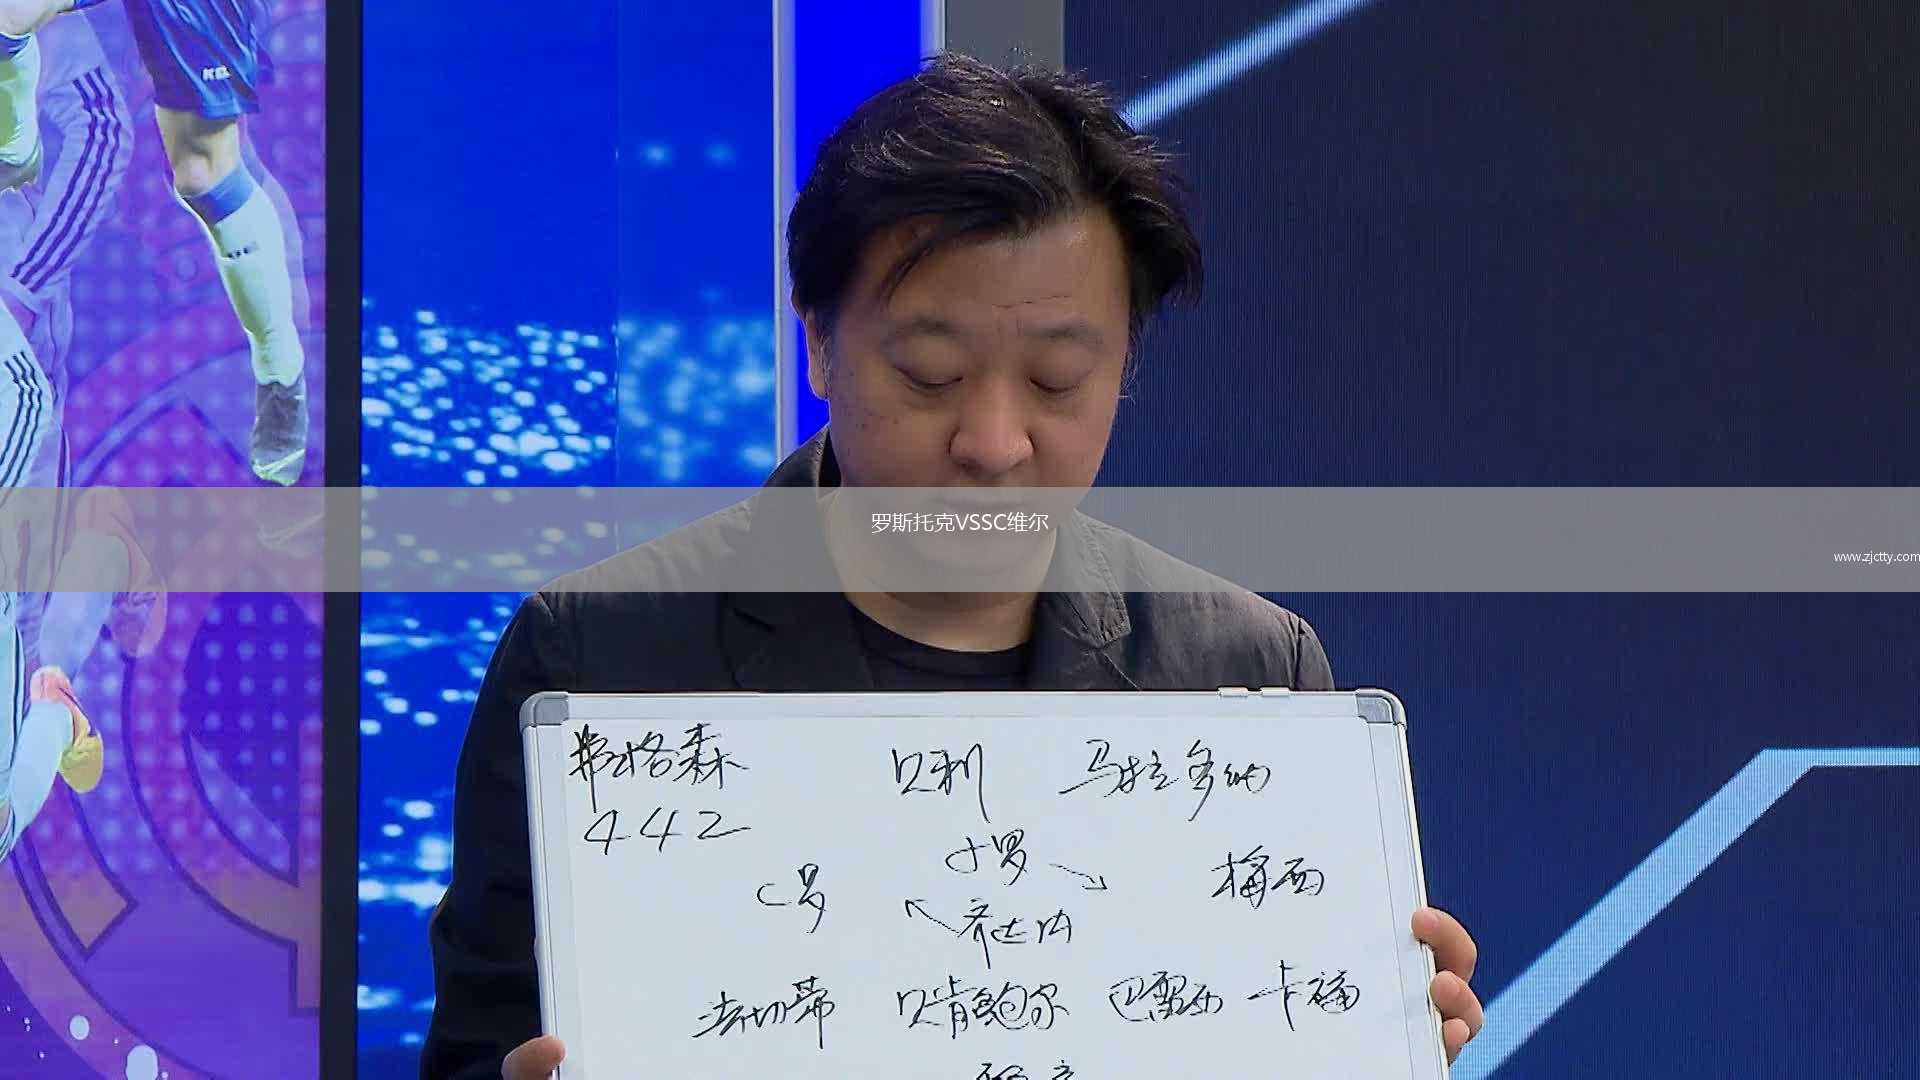 KEL
罗斯托克VSSC维尔
www.zjctty.com
弗格森 贝利 马拉多纳
442
小罗
C罗 梅西
齐达内
法切蒂 贝肯鲍尔 巴雷西 卡福